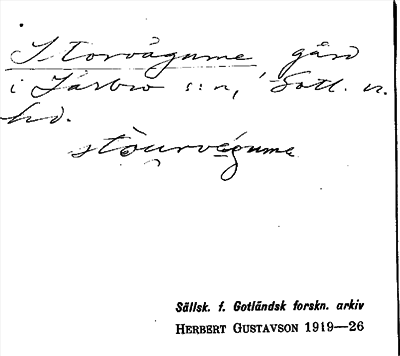 Storvägume, gård
i Lärbro s:n, Gotl. n.
hd.
stòurvégume
Sällsk. f. Gotländsk forskn. arkiv
HERBERT GUSTAVSON 1919—26